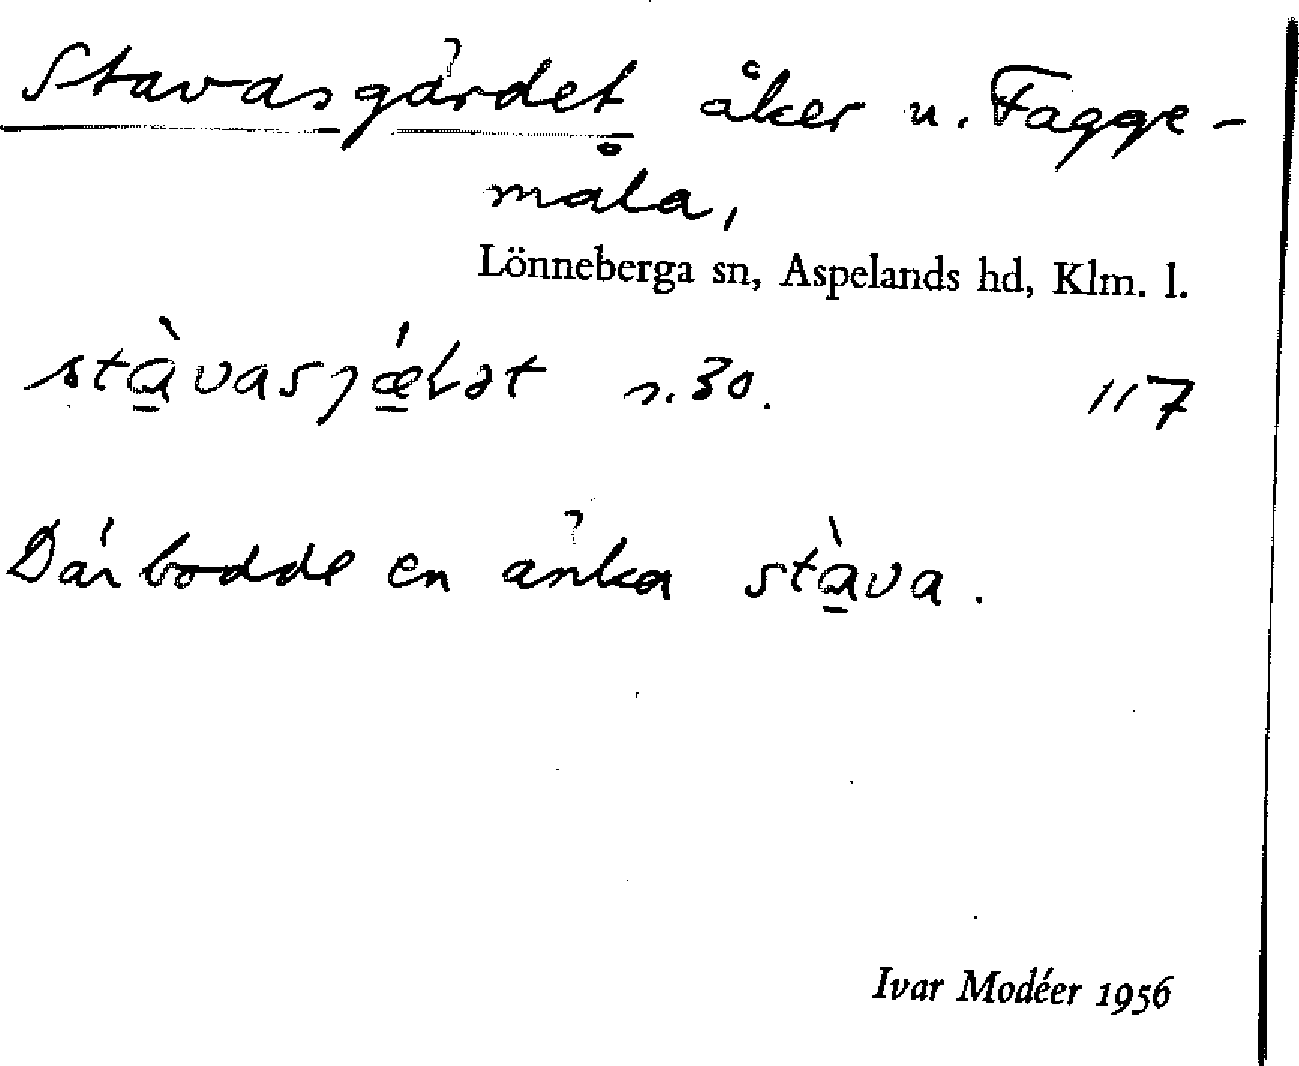 Stavasgärdet åker u. Fagge-
måla,
Lönneberga sn, Aspelands hd, Klm. l.
n. 30. 117
Där bodde en änka stàva.
Ivar Modéer 1956